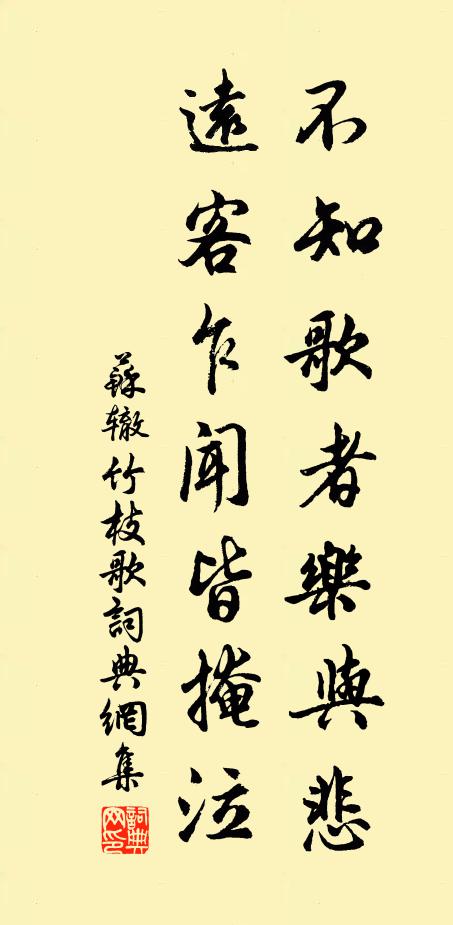 不知歌者樂與悲
遠客乍聞皆掩泣
蘇轍竹枝歌詞典網集
詞典網印